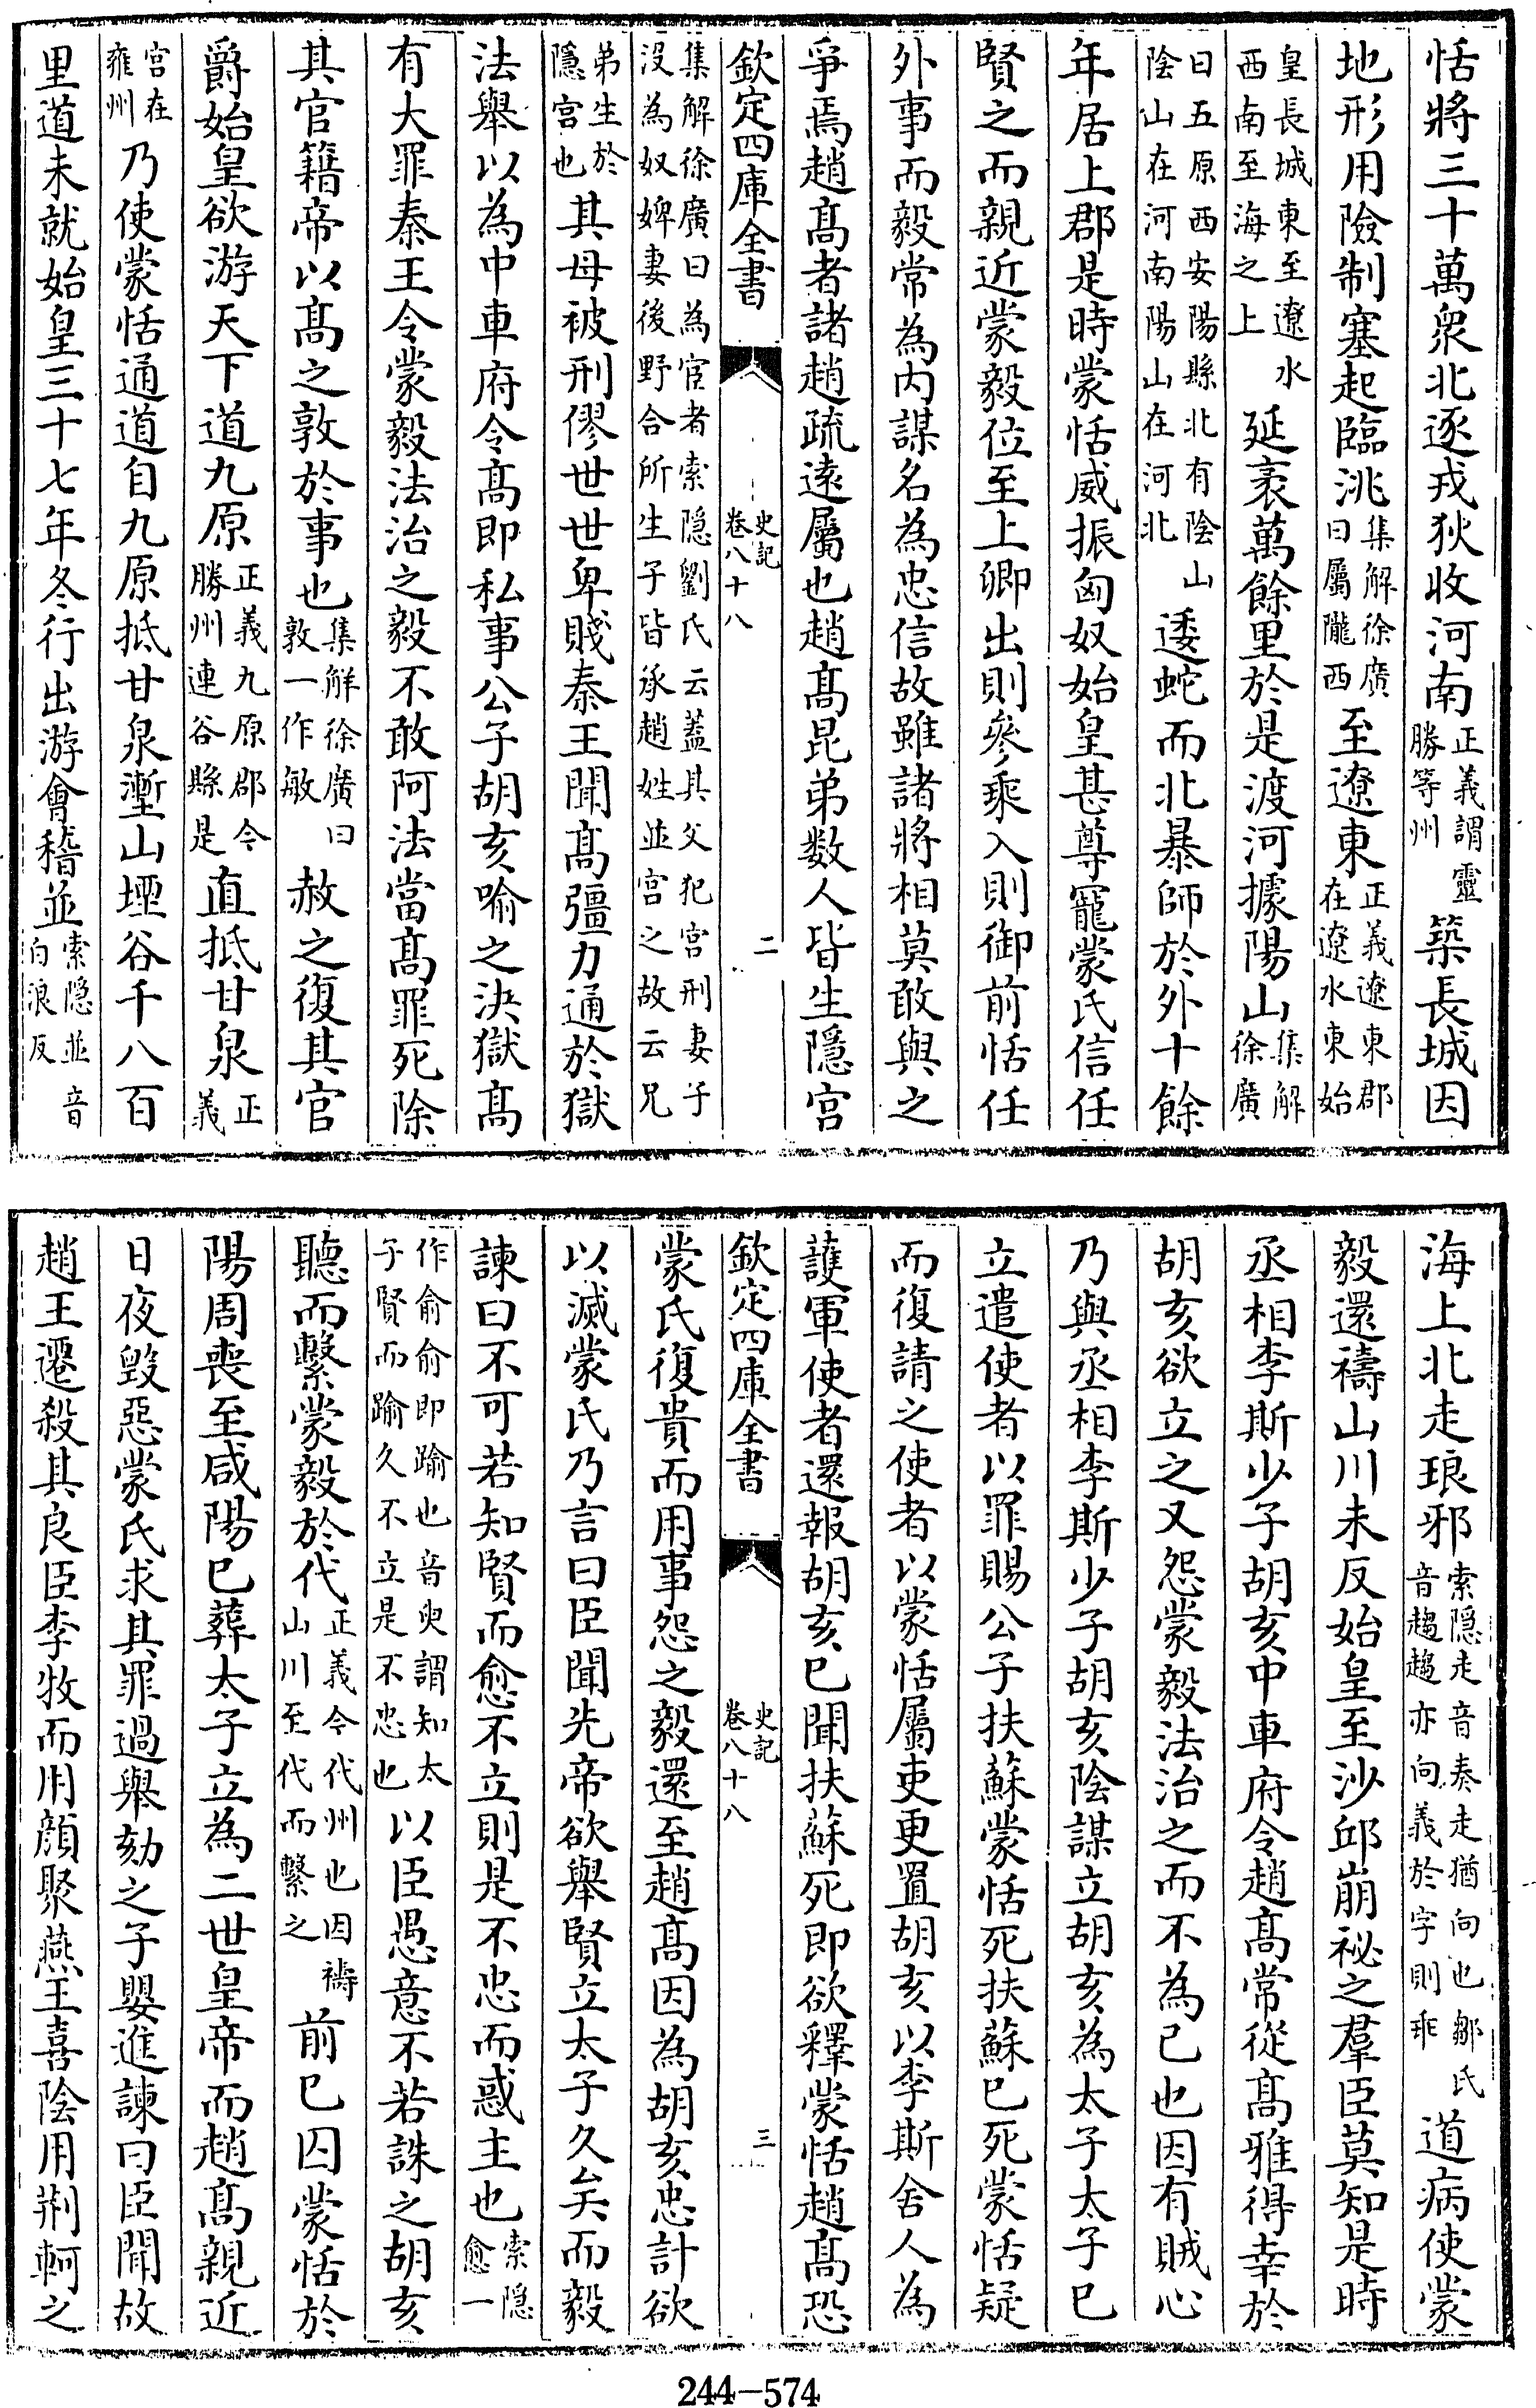 恬將三十萬衆北逐戎狄收河南正義謂靈勝等州築長城因
地形用險制塞起臨洮集解徐廣曰屬隴西至遼東正義遼東郡在遼水東始
皇長城東至遼水西南至海之上延袤萬餘里於是渡河據陽山集解徐廣
曰五原西安陽縣北有陰山陰山在河南陽山在河北逶蛇而北暴師於外十餘
年居上郡是時蒙恬威振匈奴始皇甚尊寵蒙氏信任
賢之而親近蒙毅位至上卿出則參乘入則御前恬任
外事而毅常為内謀名為忠信故雖諸將相莫敢與之
爭焉趙髙者諸趙疏逺屬也趙髙昆弟数人皆生隱宫
欽定四庫全書 史記卷八十八 二
集解徐廣曰為宦者索隱劉氏云葢其父犯宫刑妻子没為奴婢妻後野合所生子皆承趙姓並宫之故云兄
弟生於隱宫也其母被刑僇世世卑賤秦王聞髙彊力通於獄
法舉以為中車府令髙即私事公子胡亥喻之決獄髙
有大罪秦王令蒙毅法治之毅不敢阿法當髙罪死除
其官籍帝以髙之敦於事也集解徐廣曰敦一作敏赦之復其官
爵始皇欲游天下道九原正義九原郡今勝州連谷縣是直抵甘泉正義
宫在雍州乃使蒙恬通道自九原抵甘泉壍山堙谷千八百
里道未就始皇三十七年冬行出游會稽並索隱並音白浪反
海上北走琅邪索隱走音奏走猶向也鄒氏音趨趨亦向義於字則乖道病使蒙
毅還禱山川未反始皇至沙邱崩祕之羣臣莫知是時
丞相李斯少子胡亥中車府令趙髙常從髙雅得幸於
胡亥欲立之又怨蒙毅法治之而不為已也因有賊心
乃與丞相李斯少子胡亥陰謀立胡亥為太子太子已
立遣使者以罪賜公子扶蘇蒙恬死扶蘇已死蒙恬疑
而復請之使者以蒙恬屬吏更置胡亥以李斯舍人為
䕶軍使者還報胡亥已聞扶蘇死即欲釋蒙恬趙髙恐
欽定四庫全書 史記卷八十八 三
蒙氏復貴而用事怨之毅還至趙髙因為胡亥忠計欲
以滅蒙氏乃言曰臣聞先帝欲舉賢立太子久矣而毅
諫曰不可若知賢而愈不立則是不忠而惑主也索隱愈一
作俞俞即踰也音臾謂知太子賢而踰久不立是不忠也以臣愚意不若誅之胡亥
聽而繫蒙毅於代正義今代州也因禱山川至代而繫之前已囚蒙恬於
陽周喪至咸陽已葬太子立為二世皇帝而趙髙親近
日夜毁惡蒙氏求其罪過舉劾之子嬰進諫曰臣聞故
趙王遷殺其良臣李牧而用顔聚燕王喜陰用荆軻之
244-574